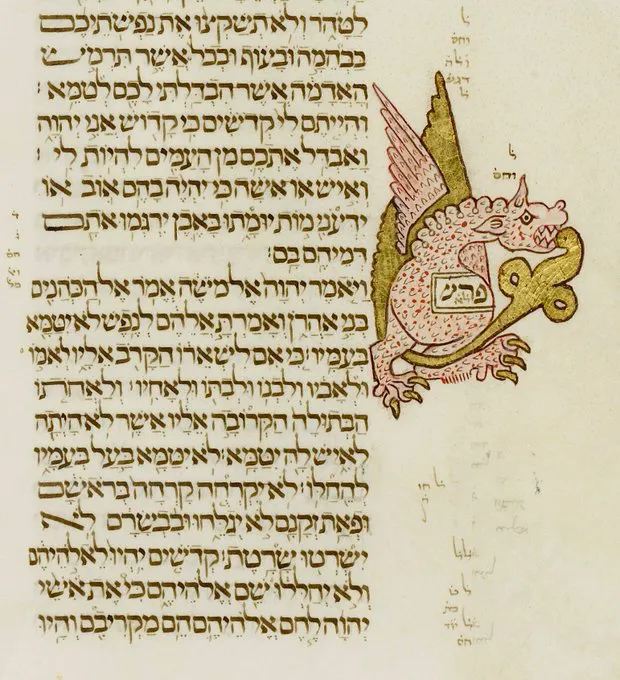 לטהר ולא תשקצו את נפשתיכם
בבהמה ובעוף ובכל אשר תרמיש
האדמה אשר הבדלתי לכם לטמא׃
והייתם לי קדשים כי קדוש אני יהוה
ואבדל אתכם מן העמים להיות לי׃
ואיש או אשה כי יהיה בהם אוב או
ידעני מות יומתו באבן ירגמו אתם
דמיהם בם׃
פרש
ויאמר יהוה אל משה אמר אל הכהנים
בני אהרן ואמרת אלהם לנפש לא יטמא
בעמיו׃ כי אם לשארו הקרב אליו לאמו
ולאביו ולבנו ולבתו ולאחיו׃ ולאחתו
הבתולה הקרובה אליו אשר לא היתה
לאיש לה יטמא׃ לא יטמא בעל בעמיו
להחלו׃ לא יקרחה קרחה בראשם
ופאת זקנם לא יגלחו ובבשרם לא
ישרטו שרטת׃ קדשים יהיו לאלהיהם
ולא יחללו שם אלהיהם כי את אשי
יהוה לחם אלהיהם הם מקריבם והיו